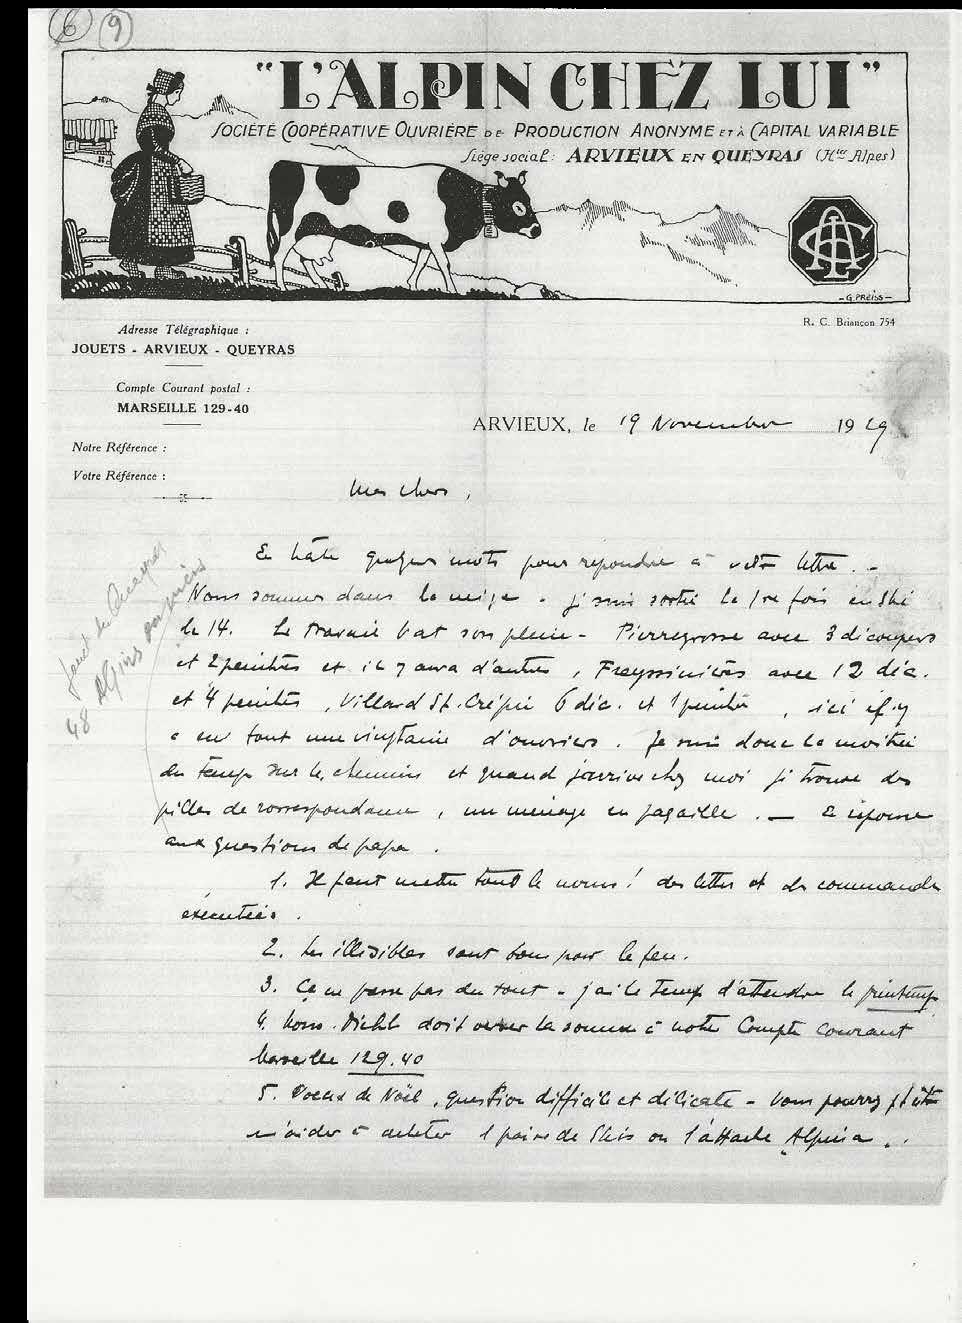 6 9
"L'ALPIN CHEZ LUI"
SOCIÉTÉ COOPÉRATIVE OUVRIÈRE DE PRODUCTION ANONYME ET À CAPITAL VARIABLE
Siège social: ARVIEUX EN QUEYRAS (Htes Alpes)
-G. PREISS-
R. C. Briançon 754
Adresse Télégraphique :
JOUETS - ARVIEUX - QUEYRAS
Compte Courant postal :
MARSEILLE 129-40
ARVIEUX, le 19 Novembre 1929
Notre Référence :
Votre Référence :
Mes chers,
En hâte quelques mots pour repondre à votre lettre. -
Nous sommes dans la neige. je suis sorti la 1re fois en ski
le 14. Le travail bat son plein - Pierregrosse avec 3 découpeurs
et 2 peintres et il y aura d'autres, Freyssinières avec 12 déc.
et 4 peintres, Villard St. Crépin 6 déc. et 1 peintre, ici il y
a en tout une vingtaine d'ouvriers. Je suis donc la moitié
du temps sur les chemins et quand j'arrive chez moi je trouve des
piles de correspondance, un ménage en pagaille. — En réponse
aux questions de papa.
1. Il faut mettre tout le monde! des lettres et des commandes
exécutées.
2. Les illisibles sont bons pour le feu.
3. Ça ne passe pas du tout - j'ai le temps d'attendre le printemps
4. Mons. Diehl doit verser la somme à notre Compte courant
Marseille 129.40
5. Voeux de Noël, question difficile et délicate - Vous pourrez p. être
m'aider à acheter 1 paire de Skis ou l'attache "Alpina".
48 Alpins ouvriers